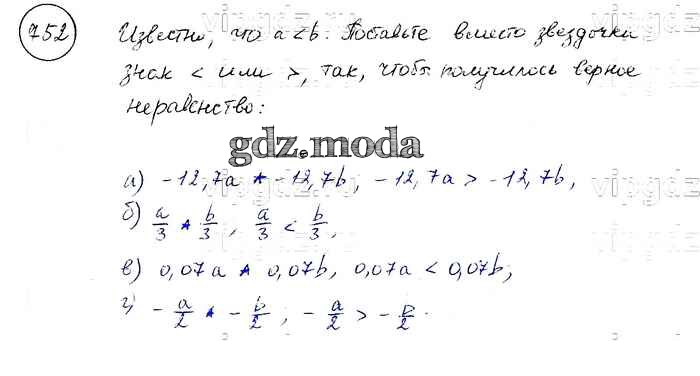 752
Известно, что a < b. Поставьте вместо звездочки
знак < или >, так, чтобы получилось верное
неравенство:
gdz.moda
а) -12,7a * -12,7b, -12,7a > -12,7b,
б) a/3 * b/3, a/3 < b/3,
в) 0,07a * 0,07b, 0,07a < 0,07b,
г) -a/2 * -b/2, -a/2 > -b/2.